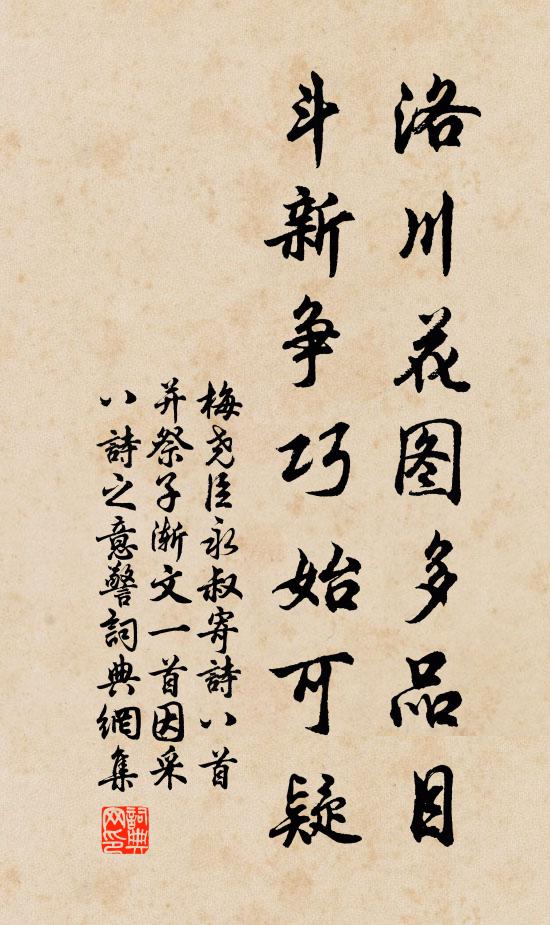 洛川花图多品目
斗新争巧始可疑
梅尧臣永叔寄詩八首
并祭子渐文一首因采
八詩之意警詞典網集
詞典网印